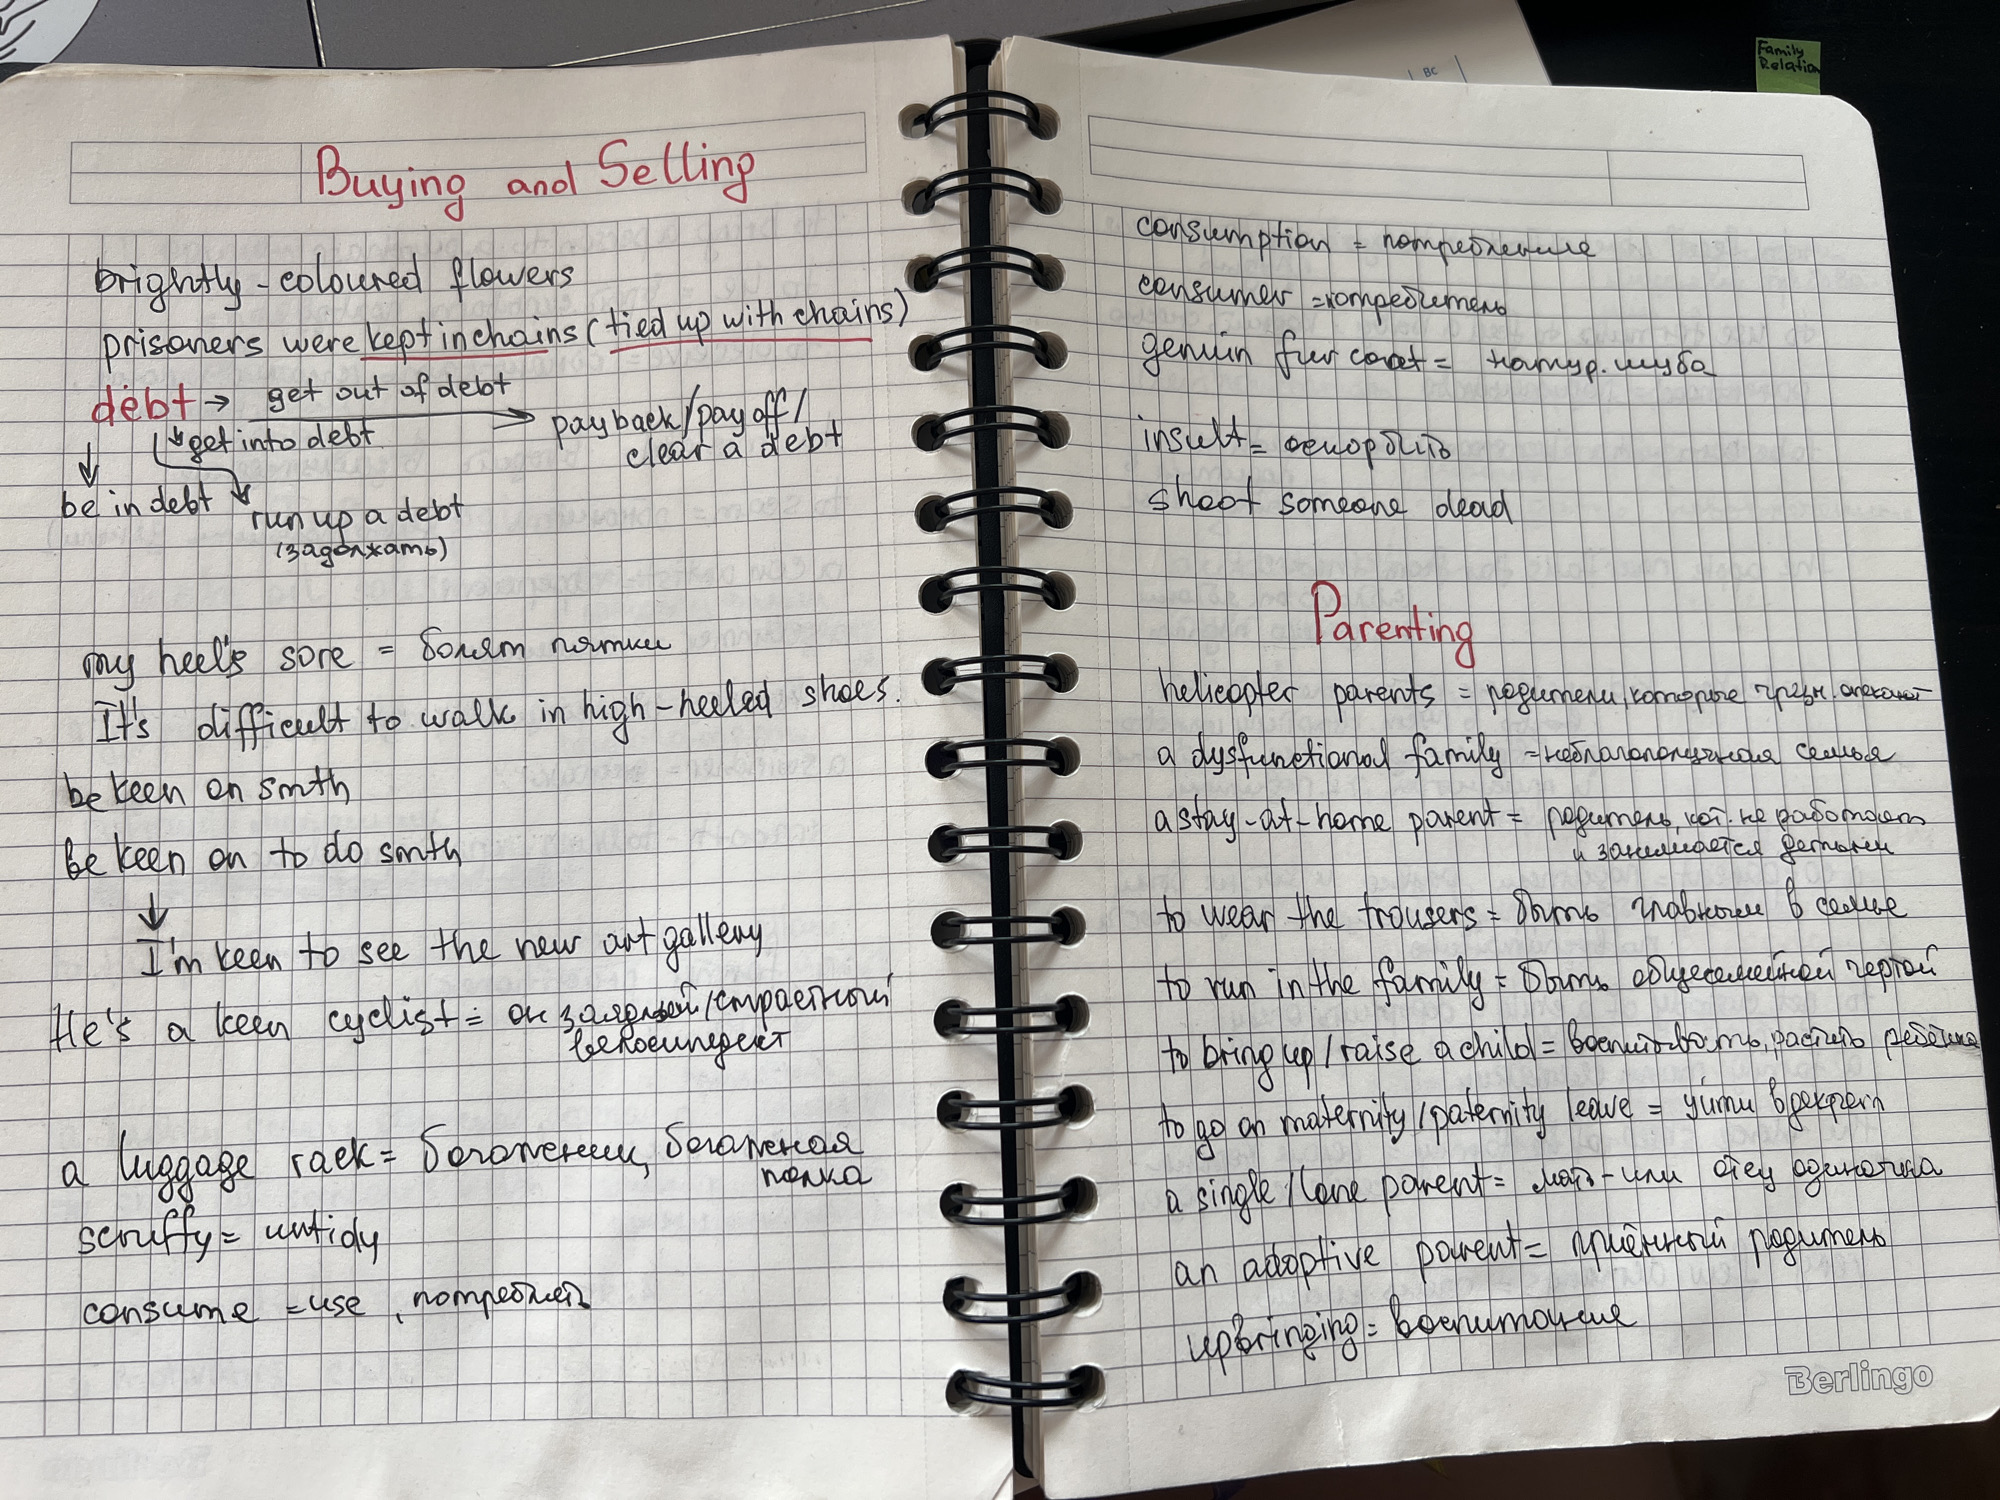 Family
Relation
BC
Buying and Selling
brightly-coloured flowers
prisoners were kept in chains (tied up with chains)
debt → get out of debt
get into debt
payback/pay off/
clear a debt
be in debt
run up a debt
(задолжать)
my heel's sore = болят пятки
It's difficult to walk in high-heeled shoes.
be keen on smth
be keen on to do smth
I'm keen to see the new art gallery
He's a keen cyclist = он заядлый/страстный
велосипедист
a luggage rack = багажник, багажная
полка
scruffy = untidy
consume = use, потреблять
consumption = потребление
consumer = потребитель
genuin fur coat = натур. шуба
insult = оскорбить
shoot someone dead
Parenting
helicopter parents = родители, которые чрезм. опекают
a dysfunctional family = неблагополучная семья
a stay-at-home parent = родитель, кот. не работает
и занимается детьми
to wear the trousers = быть главным в семье
to run in the family = быть общесемейной чертой
to bring up/raise a child = воспитывать, растить ребёнка
to go on maternity/paternity leave = уйти в декрет
a single/lone parent = мать- или отец одиночка
an adoptive parent = приёмный родитель
upbringing = воспитание
Berlingo